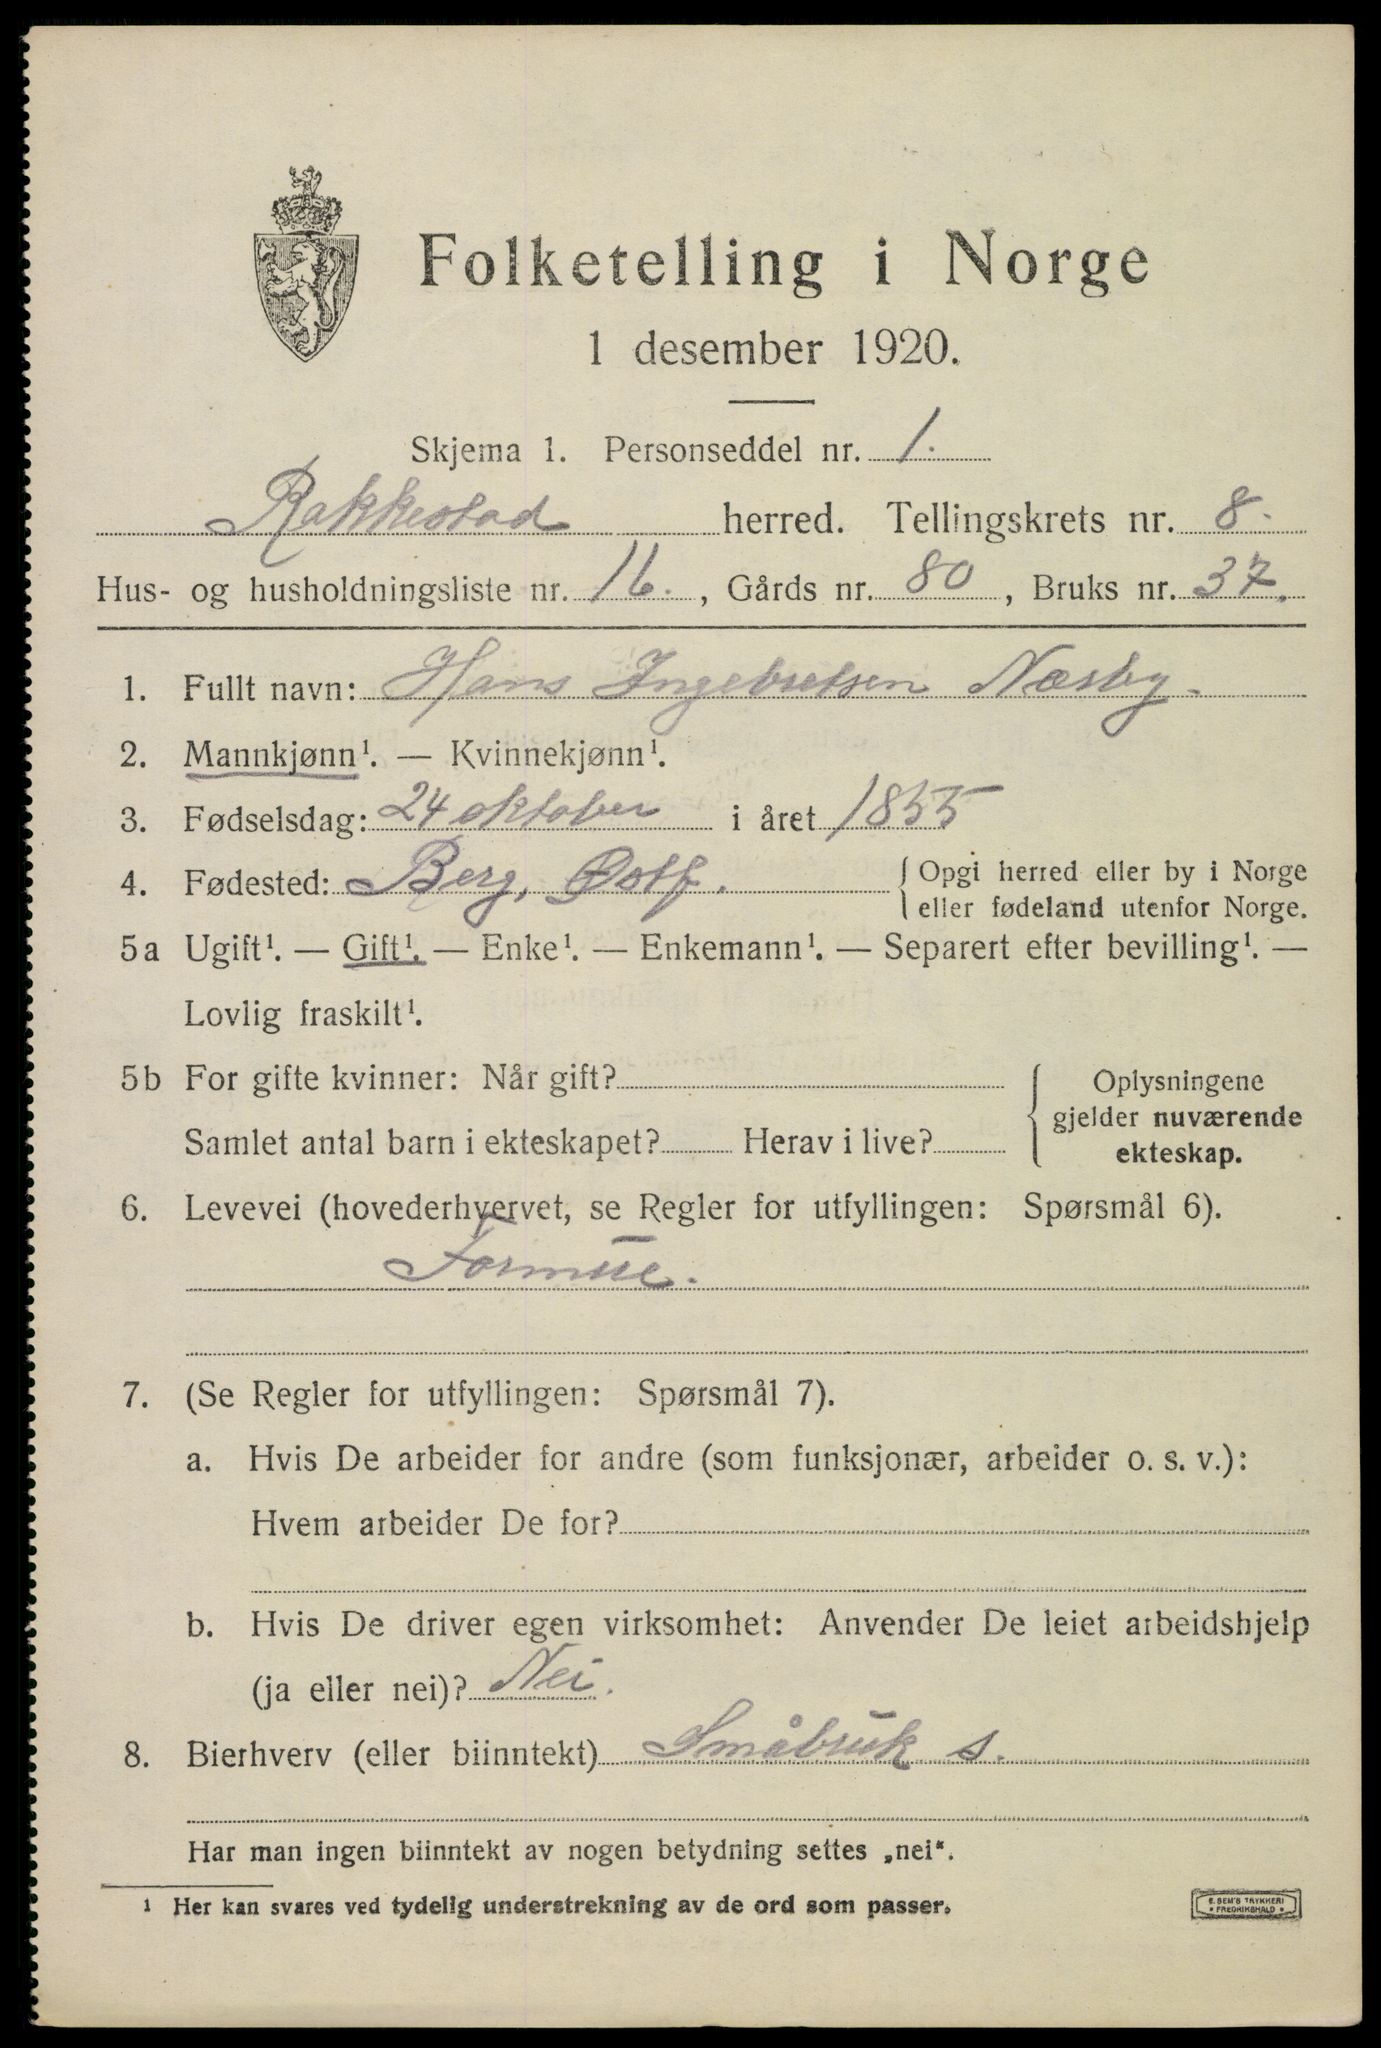 Folketelling i Norge
1 desember 1920.
Skjema 1. Personseddel nr. 1.
Rakkestad herred. Tellingskrets nr. 8.
Hus- og husholdningsliste nr. 16., Gårds nr. 80, Bruks nr. 37.
1. Fullt navn: Hans Ingebretsen Næsby.
2. Mannkjønn¹. — Kvinnekjønn¹.
3. Fødselsdag: 24 oktober i året 1855
4. Fødested: Berg, Østf. { Opgi herred eller by i Norge
eller fødeland utenfor Norge.
5a Ugift¹. — Gift¹. — Enke¹. — Enkemann¹. — Separert efter bevilling¹. —
Lovlig fraskilt¹.
5b For gifte kvinner: Når gift? { Oplysningene
gjelder nuværende
Samlet antal barn i ekteskapet? Herav i live? ekteskap.
6. Levevei (hovederhvervet, se Regler for utfyllingen: Spørsmål 6).
Formue.
7. (Se Regler for utfyllingen: Spørsmål 7).
a. Hvis De arbeider for andre (som funksjonær, arbeider o. s. v.):
Hvem arbeider De for?
b. Hvis De driver egen virksomhet: Anvender De leiet arbeidshjelp
(ja eller nei)? Nei.
8. Bierhverv (eller biinntekt) Småbruk s.
Har man ingen biinntekt av nogen betydning settes „nei“.
¹ Her kan svares ved tydelig understrekning av de ord som passer.
E. SEM'S TRYKKERI
• FREDRIKSHALD •